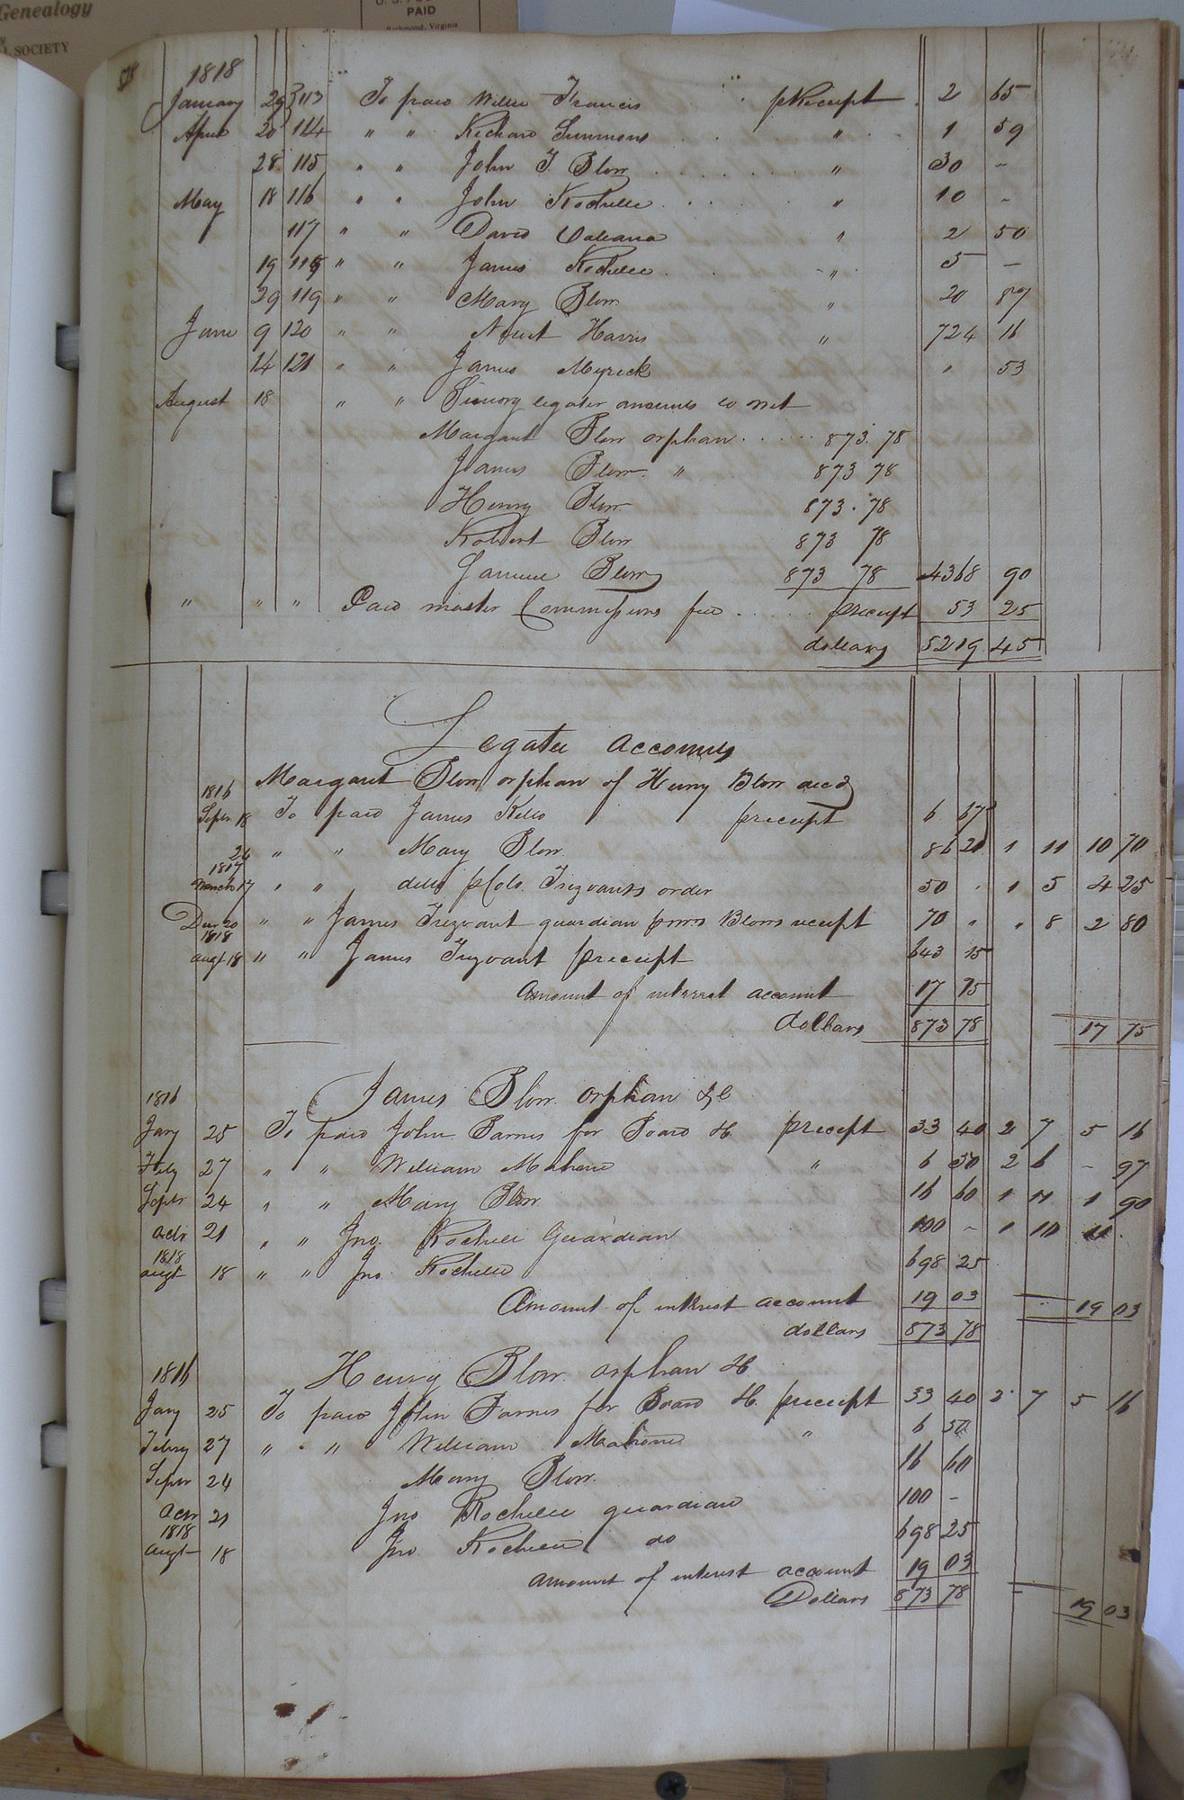 Genealogy
SOCIETY
PAID
Richmond, Virginia
1818
January 29 113 To paid Willie Francis pReceipt 2 65
April 20 114 " " Richard Simmons " 1 59
28 115 " " John T. Blow " 30 –
May 18 116 " " John Rochelle " 10 –
117 " " David " 2 50
19 118 " " James Rochelle " 5 –
29 119 " " Mary Blow " 20 87
June 9 120 " " Newit Harris " 724 16
14 121 " " James Myrick " 53
August 18 " " Sundry legatee amounts to wit
Margaret Blow orphan 873. 78
James Blow " 873 78
Henry Blow 873. 78
Robert Blow 873 78
Samuel Blow 873 78 4368 90
" " " Paid master Commissions fee preceipt 53 25
dollars 5219 45
Legatee accounts
Margaret Blow orphan of Henry Blow decd
1816
Septr 18 To paid James Kello preceipt 6 67
24 " " Mary Blow. 86 21 1 11 10 70
1817
March 17 " " ditto p Colo. Trezvants order 50 . 1 5 4 25
Decr 20 " " James Trezvant guardian p mrs Blows receipt 70 " " 8 2 80
1818
augt 18 " " James Trezvant preceipt 643 15
Amount of interest account 17 75
dollars 873 78 17 75
James Blow orphan &c
1816
Jany 25 To paid John Barnes for Board &c preceipt 33 40 2 7 5 16
Feby 27 " " William Mahone " 6 50 2 6 – 97
Septr 24 " " Mary Blow 16 60 1 11 1 90
Octr 21 " " Jno. Rochelle Guardian 100 – 1 10 11 .
1818
augt 18 " " Jno Rochelle 698 25
Amount of interest account 19 03 19 03
dollars 873 78
Henry Blow orphan &c
1816
Jany 25 To paid John Barnes for Board &c. preceipt 33 40 2 7 5 16
Febry 27 " " William Mahone " 6 50
Septr 24 Mary Blow. 16 60
Octr 21 Jno Rochelle guardian 100 –
1818
augt 18 Jno. Rochelle do 698 25
amount of interest account 19 03
Dollars 873 78 19 03